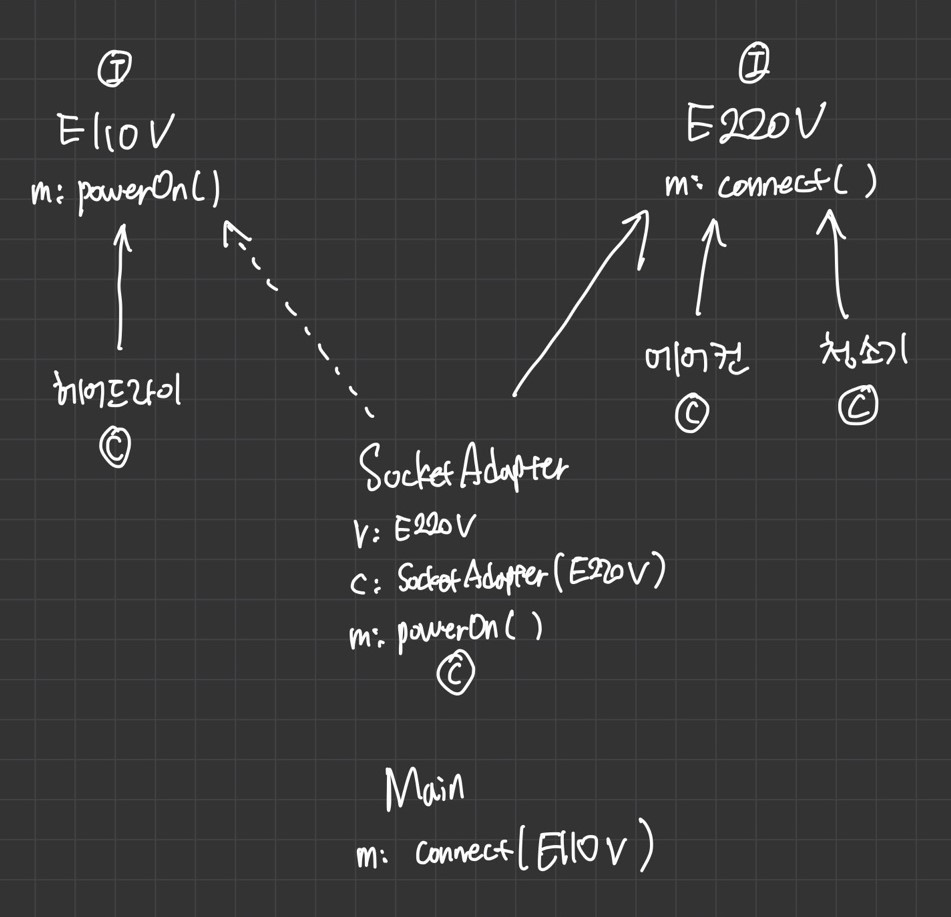 I
E110V
m: powerOn()
헤어드라이
C
I
E220V
m: connect()
에어컨
C
청소기
C
SocketAdapter
V: E220V
C: SocketAdapter(E220V)
m: powerOn()
C
Main
m: connect(E110V)